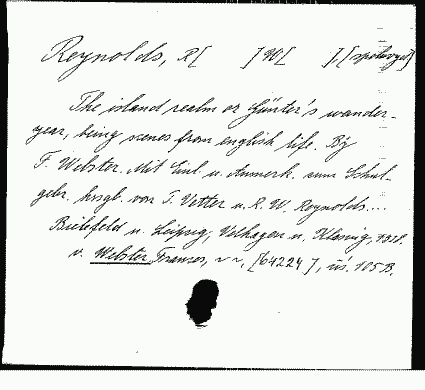 Reynolds, R[ ] W[ ], [społwyd]
The island realm or Günter's wander-
year, being scenes from english life. By
F. Webster. Mit Einl. u. Anmerk. zum Schul-
gebr. hrsgb. von T. Vetter u. R. W. Reynolds...
Bielefeld u. Leipzig, Velhagen u. Klasing,
v. Webster Frances, [64224], 105 B.